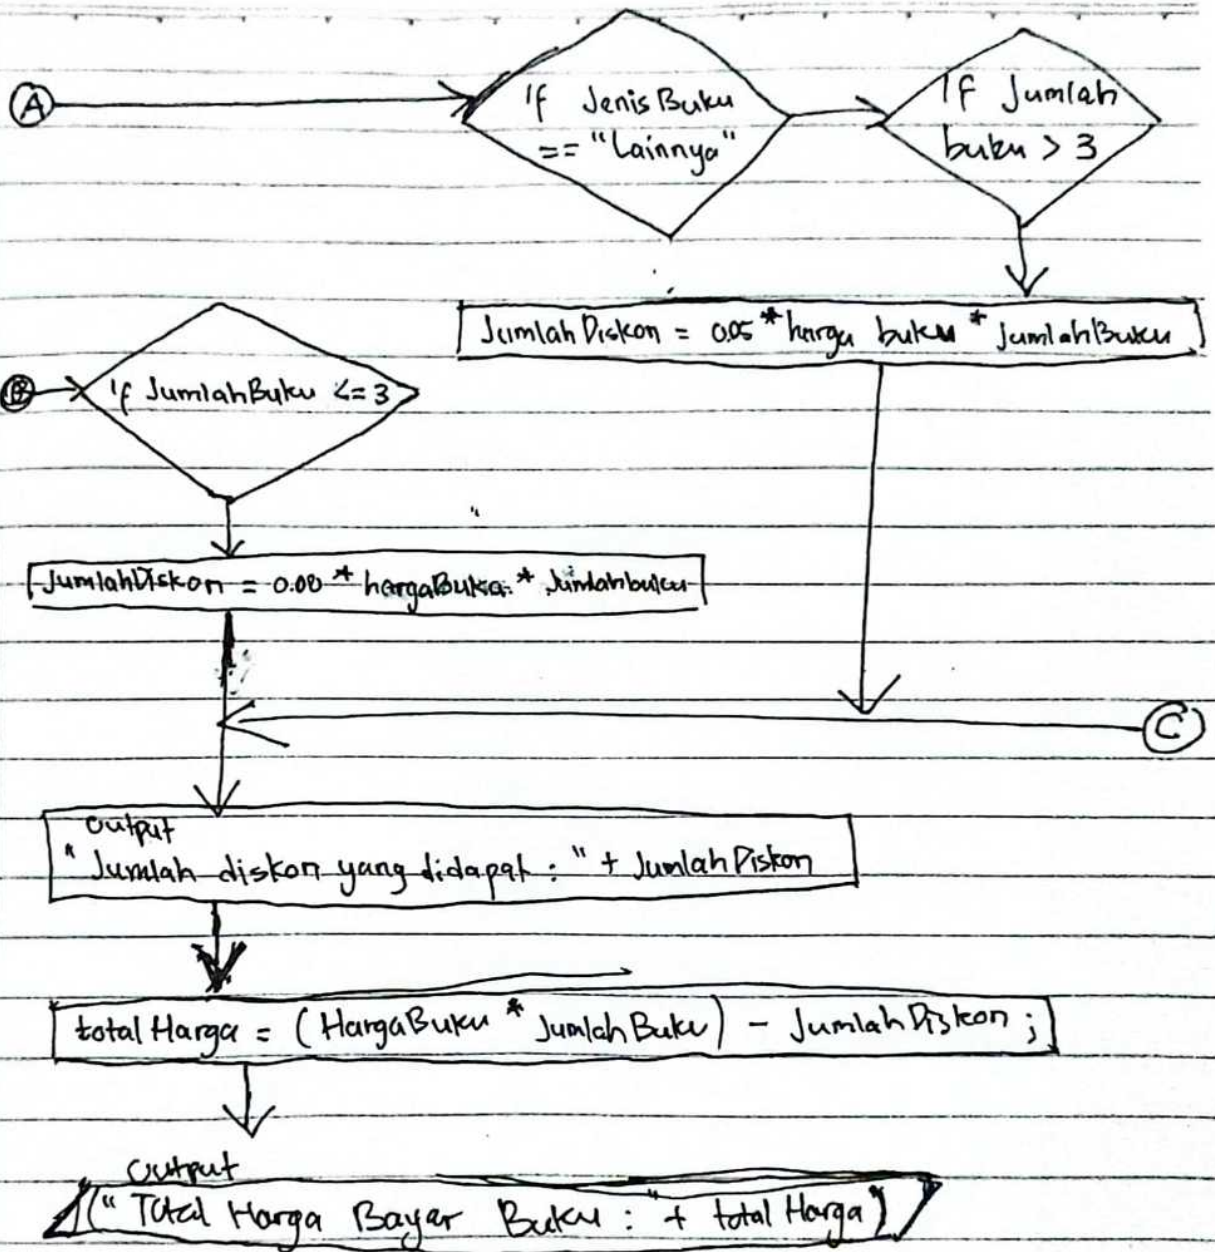 A
If JenisBuku
== "Lainnya"
If Jumlah
buku > 3
JumlahDiskon = 0.05 * harga buku * JumlahBuku
B
if JumlahBuku <= 3
JumlahDiskon = 0.00 * hargaBuku * Jumlahbuku
C
output
"Jumlah diskon yang didapat : " + JumlahDiskon
totalHarga = (HargaBuku * JumlahBuku) - JumlahDiskon ;
output
("Total Harga Bayar Buku : " + total Harga)